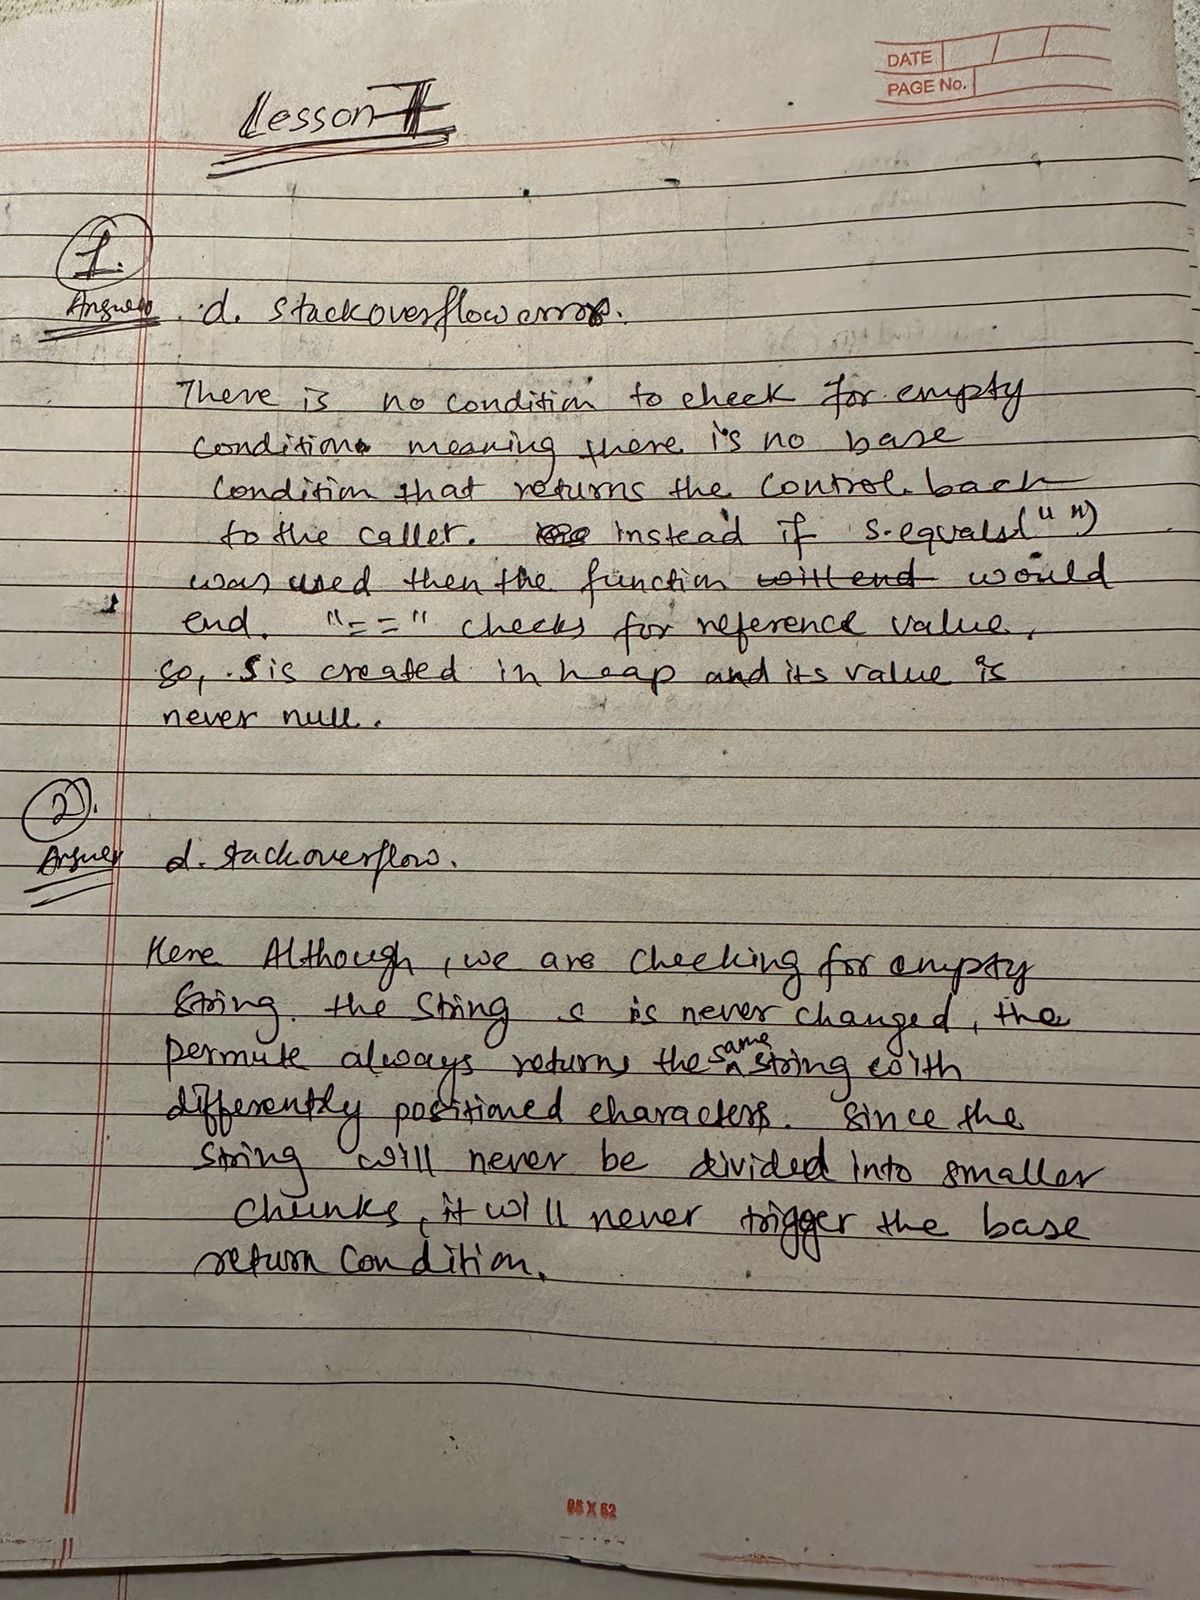 DATE / /
PAGE No.
Lesson-7
1.
Answer .d. stackoverflowerror.
There is no condition to check for empty
condition meaning there is no base
condition that returns the control back
to the caller. instead if s.equals(" ")
was used then the function will end would
end. "==" checks for reference value,
so, s is created in heap and its value is
never null.
2.
Answer d. stackoverflow.
Here Although, we are checking for empty
string. the string s is never changed, the
permute always returns the same string with
differently positioned characters. Since the
string will never be divided into smaller
chunks, it will never trigger the base
return condition.